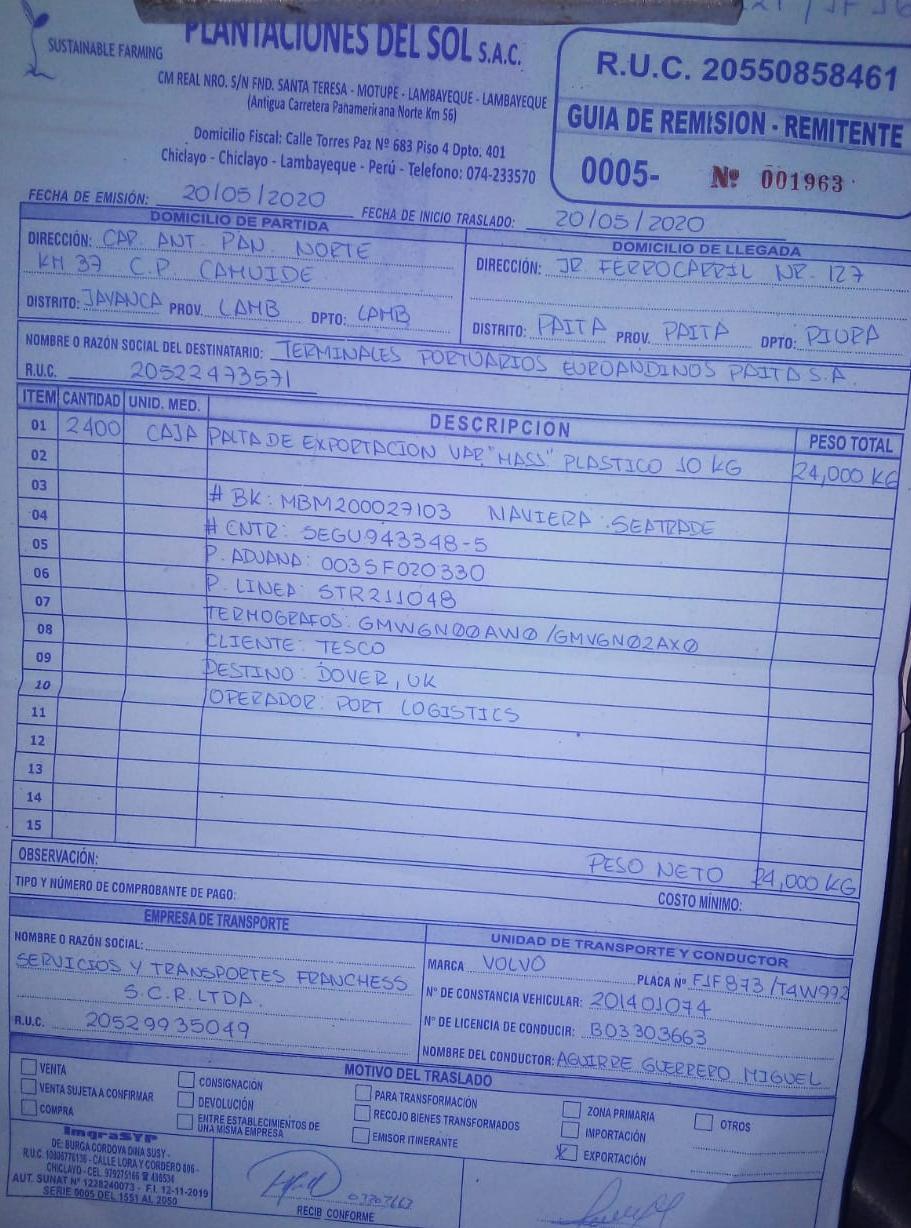 SUSTAINABLE FARMING
PLANTACIONES DEL SOL S.A.C.
CM REAL NRO. S/N FND. SANTA TERESA - MOTUPE - LAMBAYEQUE - LAMBAYEQUE
(Antigua Carretera Panamericana Norte Km 56)
Domicilio Fiscal: Calle Torres Paz Nº 683 Piso 4 Dpto. 401
Chiclayo - Chiclayo - Lambayeque - Perú - Telefono: 074-233570
R.U.C. 20550858461
GUIA DE REMISION - REMITENTE
0005- Nº 001963
FECHA DE EMISIÓN: 20/05/2020 FECHA DE INICIO TRASLADO: 20/05/2020
DOMICILIO DE PARTIDA
DIRECCIÓN: CAR. ANT. PAN. NORTE
KM 37 C.P. CAHUIDE
DISTRITO: JAYANCA PROV. LAMB DPTO: LAMB
DOMICILIO DE LLEGADA
DIRECCIÓN: JR. FERROCARRIL NR. 127
DISTRITO: PAITA PROV. PAITA DPTO: PIURA
NOMBRE O RAZÓN SOCIAL DEL DESTINATARIO: TERMINALES PORTUARIOS EUROANDINOS PAITA S.A.
R.U.C. 20522473571
ITEM CANTIDAD UNID. MED. DESCRIPCION PESO TOTAL
01 2400 CAJA PALTA DE EXPORTACION VAR. "HASS" PLASTICO 10 KG 24,000 KG
02
03 # BK: MBM200027103 NAVIERA: SEATRADE
04 # CNTR: SEGU943348-5
05 P. ADUANA: 0035F020330
06 P. LINEA: STR211048
07 TERMOGRAFOS: GMWGN00AW0 / GMVGN02AX0
08 CLIENTE: TESCO
09 DESTINO: DOVER, UK
10 OPERADOR: PORT LOGISTICS
11
12
13
14
15
OBSERVACIÓN: PESO NETO 24,000 KG
TIPO Y NÚMERO DE COMPROBANTE DE PAGO: COSTO MÍNIMO:
EMPRESA DE TRANSPORTE
NOMBRE O RAZÓN SOCIAL:
SERVICIOS Y TRANSPORTES FRANCHESS
S.C.R. LTDA.
R.U.C. 20529935049
UNIDAD DE TRANSPORTE Y CONDUCTOR
MARCA VOLVO PLACA Nº F1F873/T4W992
Nº DE CONSTANCIA VEHICULAR: 201401074
Nº DE LICENCIA DE CONDUCIR: B03303663
NOMBRE DEL CONDUCTOR: AGUIRRE GUERRERO MIGUEL
MOTIVO DEL TRASLADO
VENTA
VENTA SUJETA A CONFIRMAR
COMPRA
CONSIGNACIÓN
DEVOLUCIÓN
ENTRE ESTABLECIMIENTOS DE
UNA MISMA EMPRESA
PARA TRANSFORMACIÓN
RECOJO BIENES TRANSFORMADOS
EMISOR ITINERANTE
ZONA PRIMARIA
IMPORTACIÓN
X EXPORTACIÓN
OTROS
ImgraSYP
DE: BURGA CORDOVA DINA SUSY -
R.U.C. 10806776136 - CALLE LORA Y CORDERO 806 -
CHICLAYO - CEL. 979275166 ☎ 436534
AUT. SUNAT Nº 1228240073 - F.I. 12-11-2019
SERIE 0005 DEL 1551 AL 2050
RECIB CONFORME